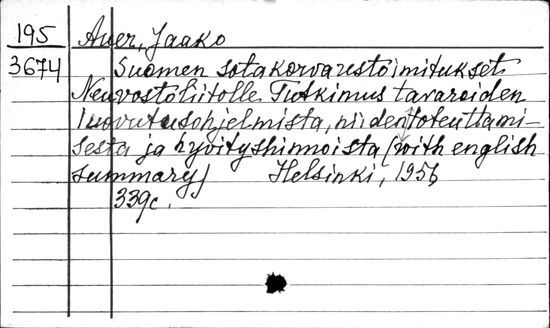 195 Auer, Jaako
3674 Suomen sotakorvaustoimitukset
Neuvostoliitolle Tutkimus tavaroiden
luovutusohjelmista, niiden toteuttami-
sesta ja hyvityshinnoista (with english
summary) Helsinki, 1956
339c.